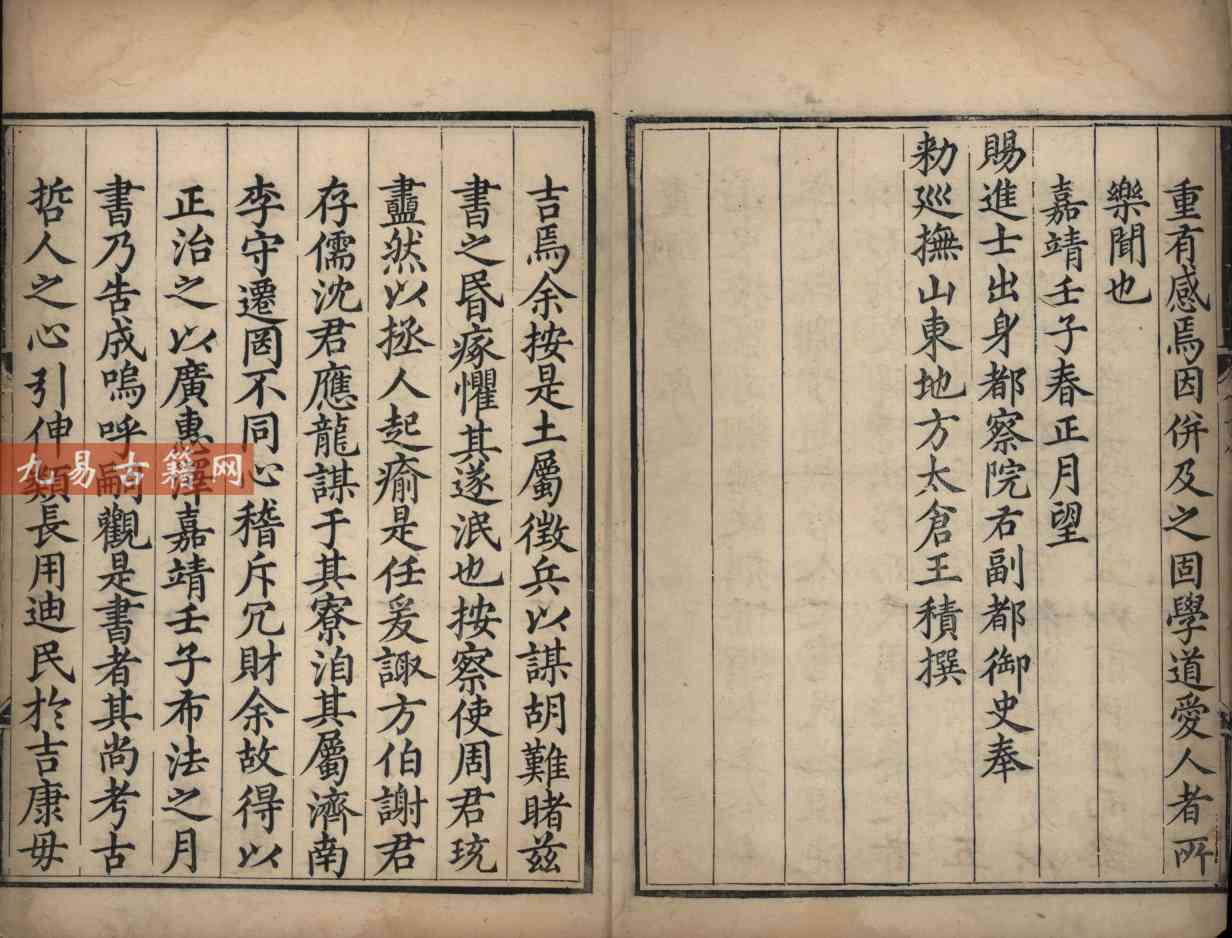 重有感焉因併及之固學道愛人者所
樂聞也
嘉靖壬子春正月望
賜進士出身都察院右副都御史奉
勑廵撫山東地方太倉王積撰
吉焉余按是土屬徵兵以謀胡難睹茲
書之昬瘃懼其遂泯也按察使周君珫
衋然以拯人起瘉是任爰諏方伯謝君
存儒沈君應龍謀于其寮洎其屬濟南
李守遷罔不同心稽斥冗財余故得以
正治之以廣惠澤嘉靖壬子布法之月
書乃告成嗚呼嗣觀是書者其尚考古
哲人之心引伸類長用迪民於吉康毋
九易古籍网